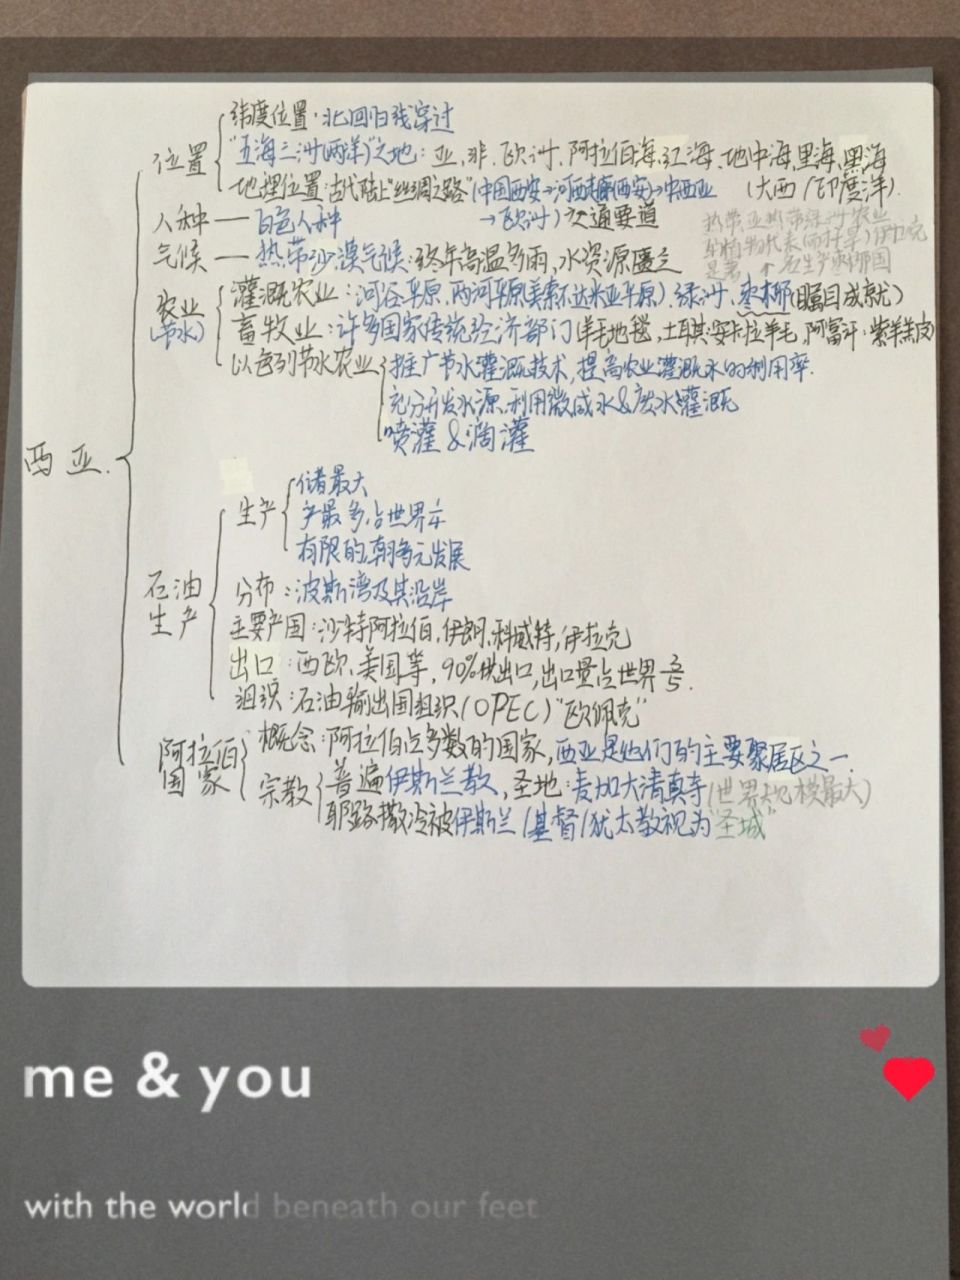 纬度位置：北回归线穿过
位置
"五海三洲(两洋)"之地：亚、非、欧洲、阿拉伯海、红海、地中海、里海、黑海
地理位置：古代陆上"丝绸之路"(中国西安→河西→中西亚 (大西/印度洋).
→欧洲)交通要道
人种——白色人种
热带亚热带绿洲农业
气候——热带沙漠气候：终年高温多雨，水资源匮乏
农业
(节水)
灌溉农业：河谷平原、两河平原(美索不达米亚平原)、绿洲、枣椰(瞩目成就)
畜牧业：许多国家传统经济部门(羊毛地毯，土耳其：安卡拉羊毛，阿富汗：紫羔羊皮)
以色列节水农业
推广节水灌溉技术，提高农业灌溉水的利用率.
充分开发水源，利用微咸水&废水灌溉
喷灌&滴灌
西亚.
储最大
生产
产最多，占世界
有限的，朝多元发展
石油
生产
分布：波斯湾及其沿岸
主要产国：沙特阿拉伯，伊朗，科威特，伊拉克
出口：西欧、美国等，90%供出口，出口量占世界3/5.
组织：石油输出国组织(OPEC)"欧佩克"
阿拉伯
国家
概念：阿拉伯占多数的国家，西亚是他们的主要聚居区之一.
宗教
普遍伊斯兰教，圣地：麦加大清真寺(世界规模最大)
耶路撒冷被伊斯兰/基督/犹太教视为"圣城"
me & you
with the world beneath our feet